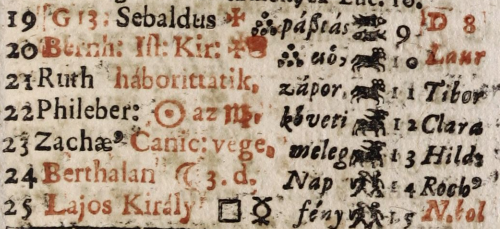 19 G 13. Sebaldus páßtás 9 D 8
20 Bernh: Ist: Kir: eső, 10 Laur
21 Ruth háborittatik, zápor, 11 Tibor
22 Phileber: ☉ az ♍, követi 12 Clara
23 Zachæ9 Canic: vege, meleg 13 Hild:
24 Berthalan ☾ 3. d, Nap 14 Roch9
25 Lajos Király □ ☿ fény 15 N. bol